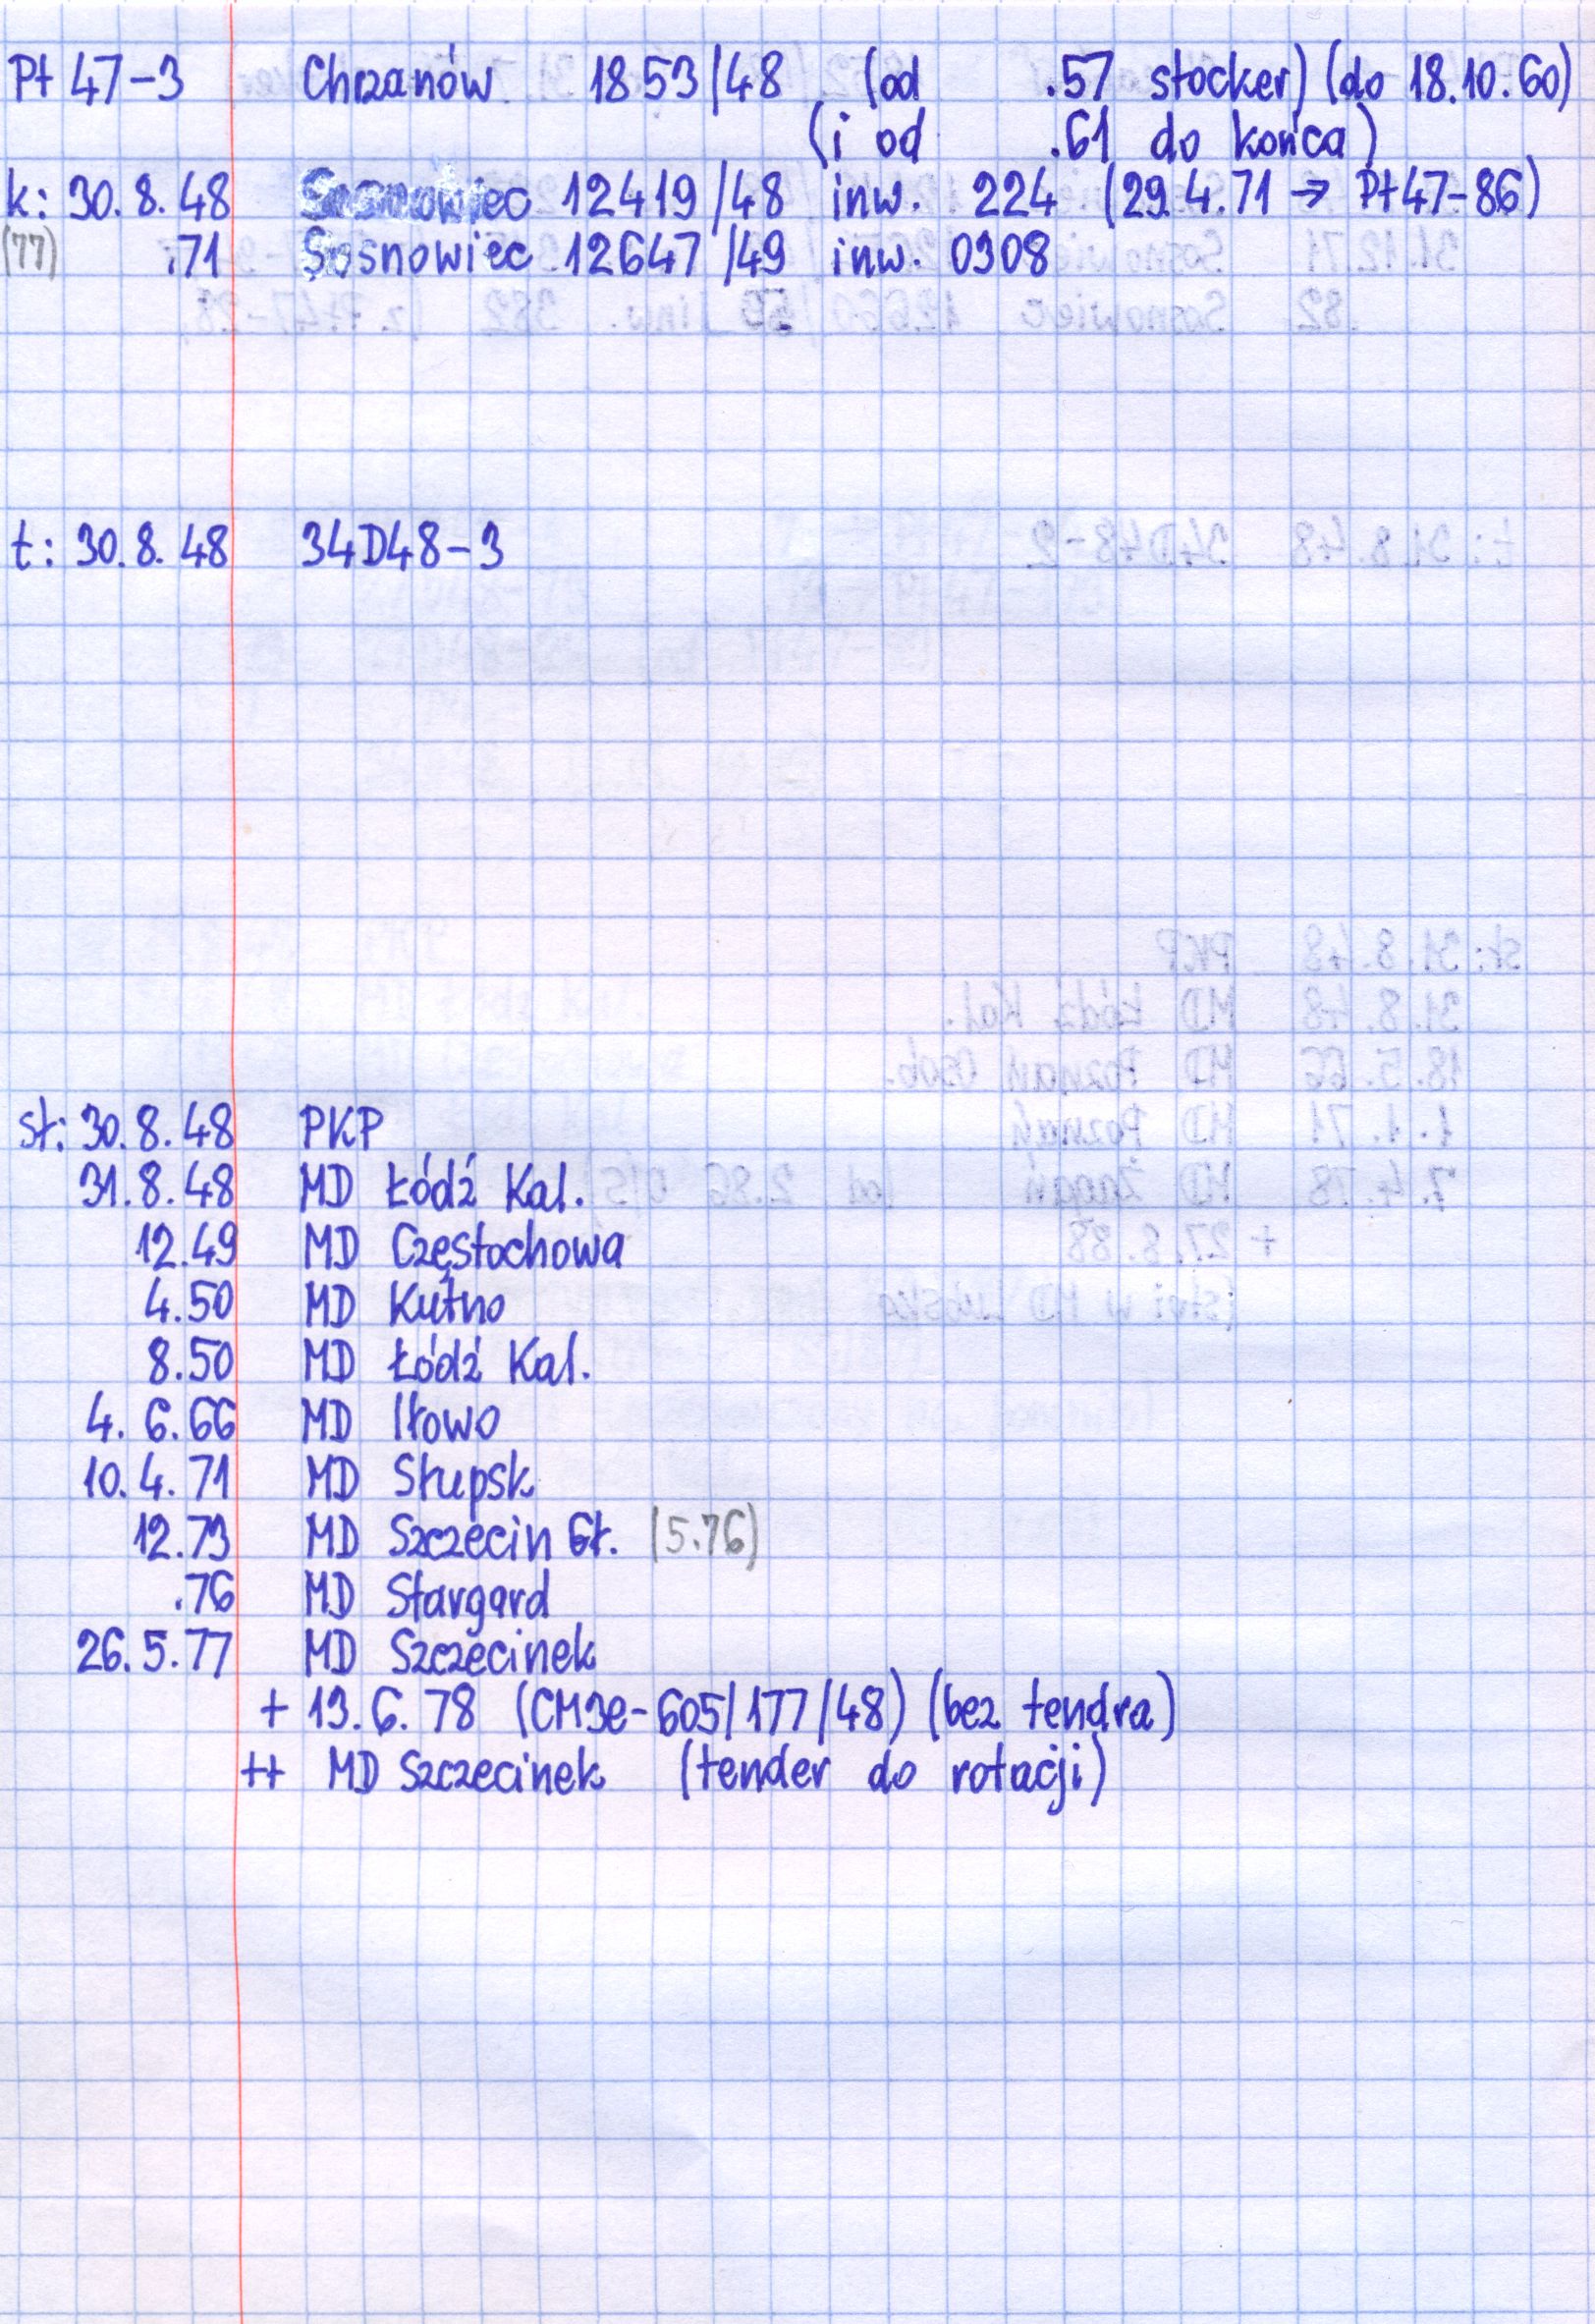 Pt 47-3 Chrzanów 1853/48 (od .57 stocker) (do 18.10.60)
(i od .61 do końca)
k: 30.8.48 Sosnowiec 12419/48 inw. 224 (29.4.71 → Pt47-86)
(77) .71 Sosnowiec 12647/49 inw. 0308
t: 30.8.48 34D48-3
sł: 30.8.48 PKP
31.8.48 MD Łódź Kal.
12.49 MD Częstochowa
4.50 MD Kutno
8.50 MD Łódź Kal.
4.6.66 MD Iłowo
10.4.71 MD Słupsk
12.73 MD Szczecin Gł. (5.76)
.76 MD Stargard
26.5.77 MD Szczecinek
+ 13.6.78 (CM3e-605/177/48) (bez tendra)
++ MD Szczecinek (tender do rotacji)